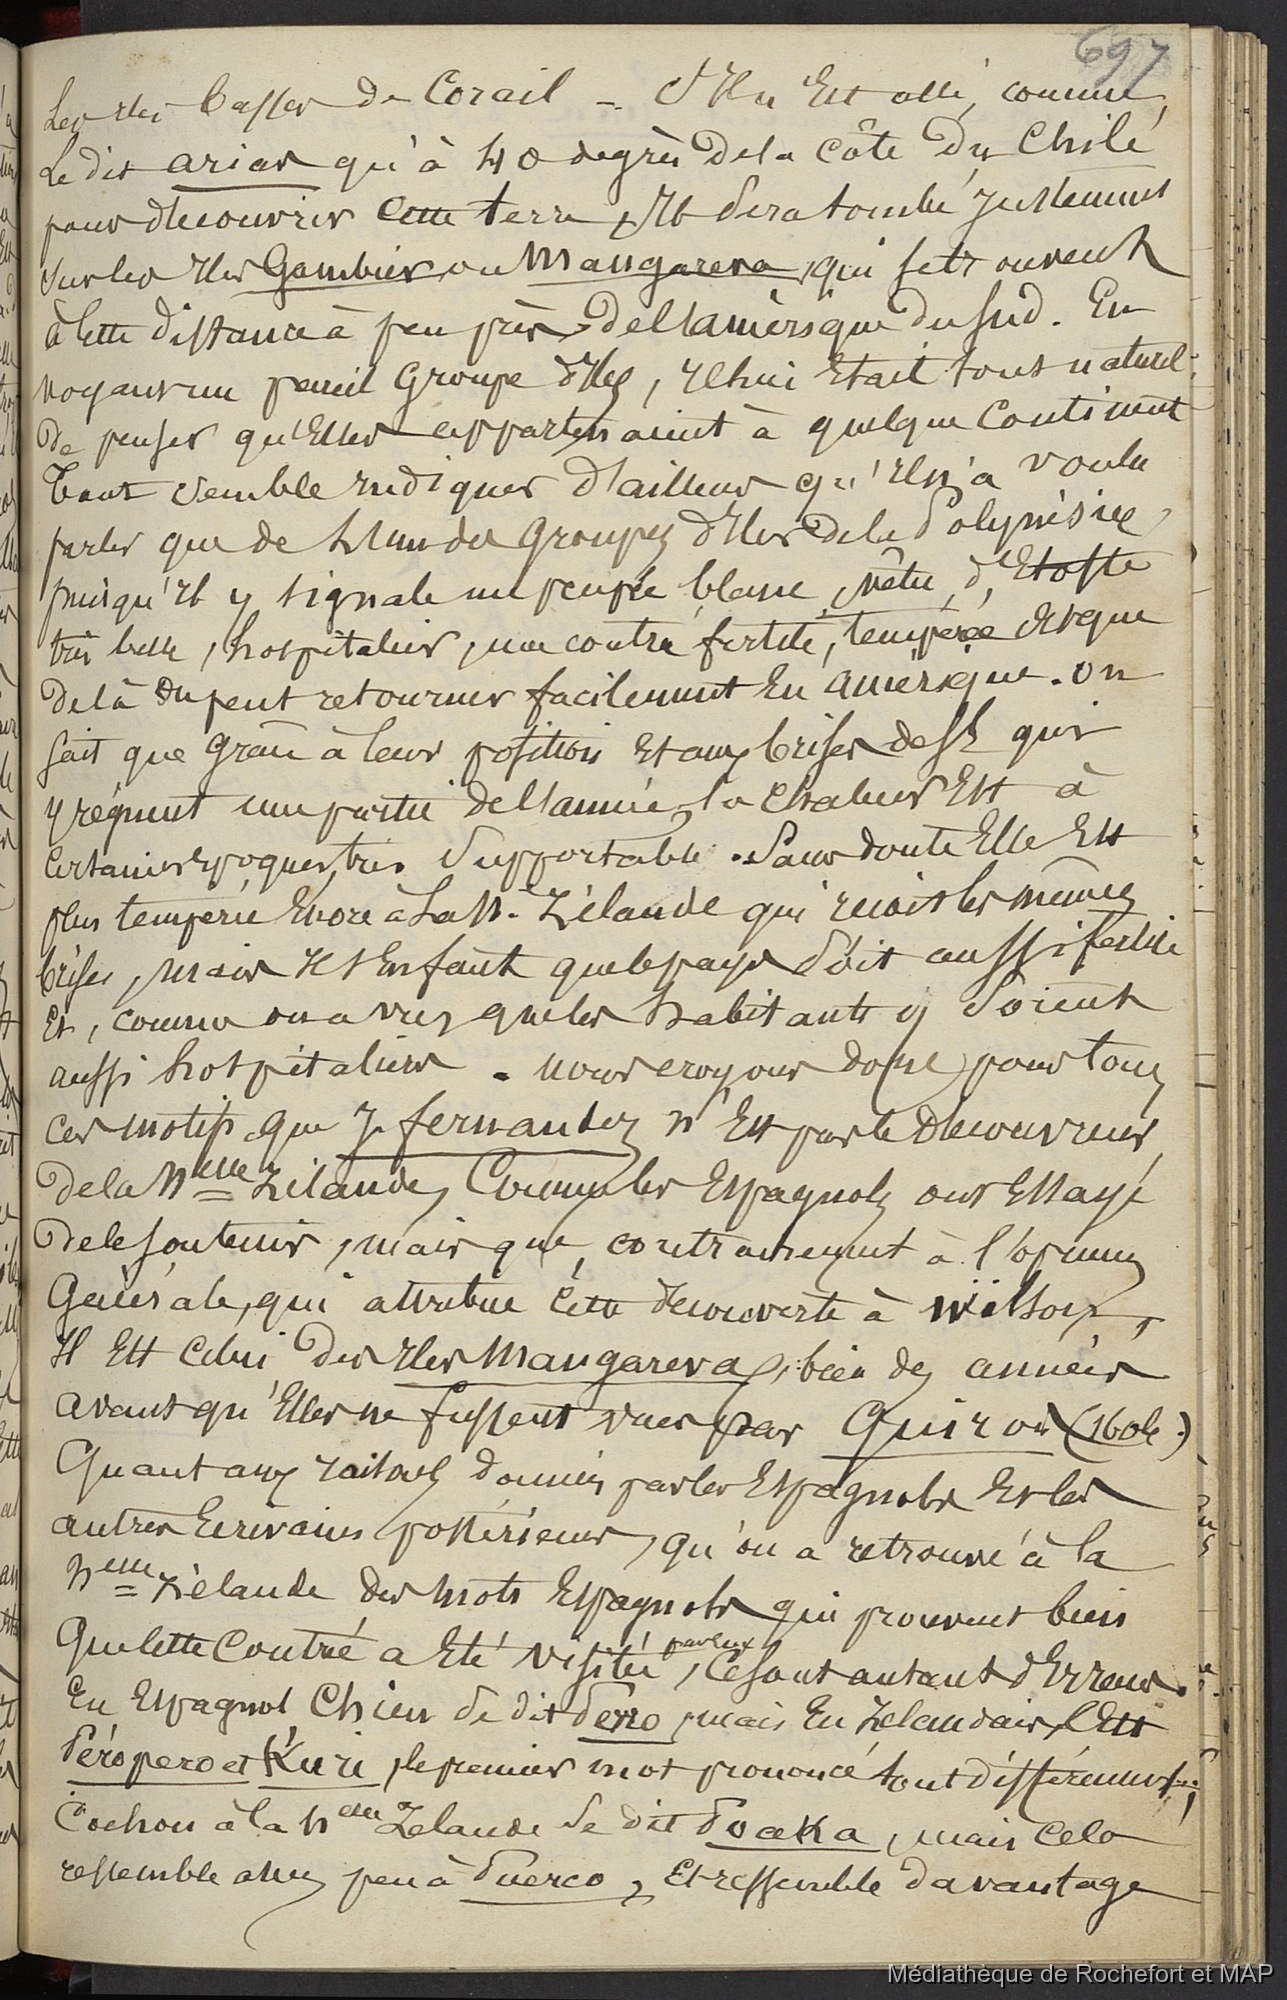 697
Les Iles basses de Corail - S'Il n'Est allé, comme
Le dit arias qu'à 40 degrès de la Côte du Chilé
pour découvrir Cette terre, Il sera tombé justement
sur les Iles Gambier ou Mangareva, qui se trouvent
à cette distance à peu près de l'amérique du Sud. En
voyant un pareil Groupe d'Iles, Il lui Etait tout naturel
De penser qu'Elles appartenaient à quelque Continent
Tout semble Indiquer d'ailleurs qu'Il n'a voulu
parler que de l'un des Groupes d'Iles de la Polynésie,
puisqu'Il y signale un peuple blanc, vêtu d'Etoffe
très belle, hospitalier, une contrée fertile, tempérée et que
De là on peut retourner facilement En amérique. On
sait que Grâce à leur position Et aux brises de SE qui
y règnent une partie de l'année, la Chaleur Est à
Certaines Epoques, très supportable. Sans doute Elle Est
plus tempérée Encore à La N. Zélande qui reçoit les mêmes
brises, mais Il s'En faut que le pays soit aussi fertile
Et, comme on a vu, que les habitants y soient
aussi hospitaliers. Nous croyons donc pour tous
ces motifs que J. fernandez n'Est pas le découvreur
De la Nelle Zélande, Comme les Espagnols ont Essayé
De le soutenir, mais que, contrairement à l'opinion
Générale, qui attribue cette découverte à Wilson,
Il Est Celui des Iles Mangareva, bien des années
avant qu'Elles ne fussent vues par Quiros (1606.)
Quant aux raisons données par les Espagnols Et les
autres Ecrivains postérieurs, qu'on a retrouvé à la
Nelle Zélande des mots Espagnols qui prouvent bien
Que cette Contrée a Eté visitée par eux, Ce sont autant d'Erreurs.
En Espagnol Chien se dit Perro, mais En Zelandais, C'Est
Péropero et Kuri, le premier mot prononcé tout différemment;
Cochon à la Nelle Zelande se dit Poaka, mais cela
ressemble assez peu à Puerco, Et ressemble davantage
Médiathèque de Rochefort et MAP